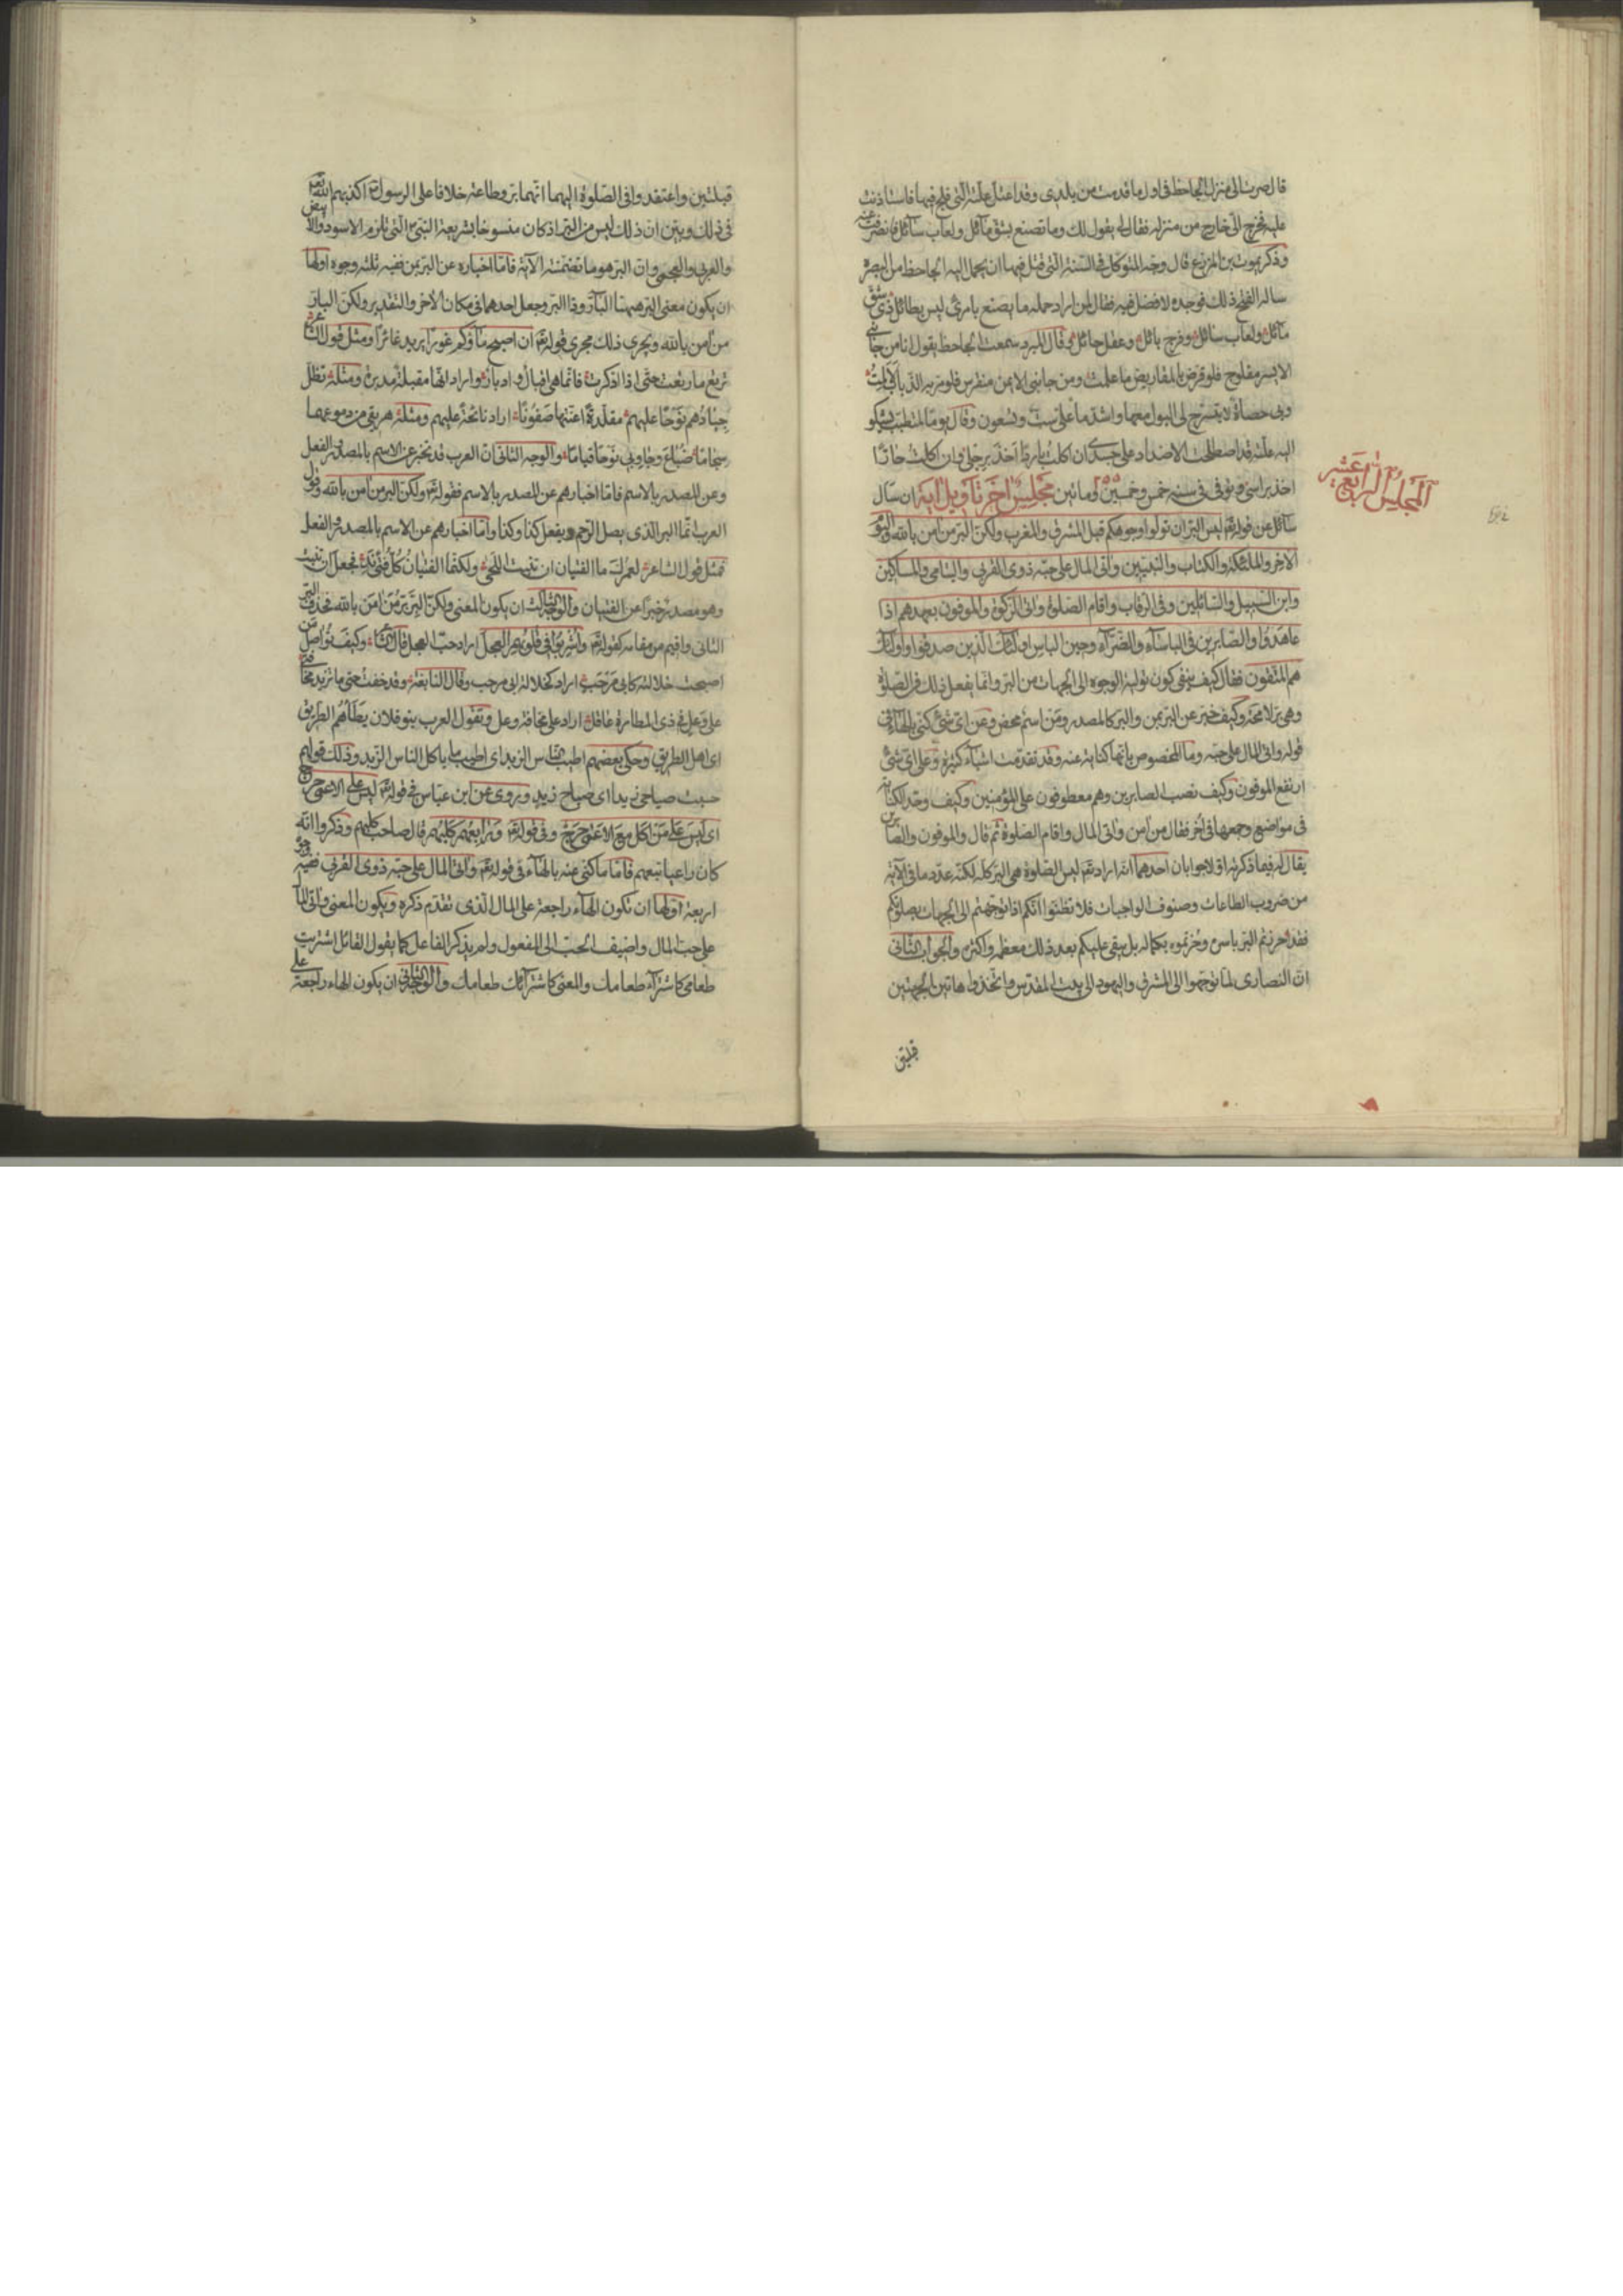 قال صرت الى منزل الجاحظ فى اول ما قدمت من بلدى وقد اعتل علته التى فلج فيها فاستاذنت
عليه فخرج الىّ خارج من منزله فقال لى يقول لك وما تصنع بشق مآئل ولعاب سآئل فانصرفت عنه
وذكر يموت بن المزرع قال وجه المتوكل فى السنة التى قتل فيها ان يحمل اليه الجاحظ من البصره
ساله الفتح ذلك فوجده لا فضل فيه فقال لمن اراد حمله ما يصنع بامرئ ليس بطائل ذى شق
مآئل ولعاب سآئل وفرج بائل وعقل حائل قال المبرد سمعت الجاحظ يقول انا من جانبى
الايسر مفلوج فلو قرض بالمقاريض ما علمت ومن جانبى الايمن منقرس فلو مر به الذباب لالمت
وبى حصاة لا يتسرح لى البول معها واشد ما على ست وتسعون وقال يوما لمتطبب يشكو
اليه علته قد اصطلحت الاضداد على جسدى ان اكلت باردا اخذ برجلى وان اكلت حارّا
اخذ براسى وتوفى فى سنة خمس وخمسين ومائتين مجلس اخر تاويل اية ان سال
المجلس الرابع عشر
سآئل عن قوله تعم ليس البر ان تولوا وجوهكم قبل المشرق والمغرب ولكن البر من امن بالله واليوم
الاخر والملئكة والكتاب والنبيين واتى المال على حبه ذوى القربى واليتامى والمساكين
وابن السبيل والسائلين وفى الرقاب واقام الصلوة واتى الزكوة والموفون بعهدهم اذا
عاهدوا والصابرين فى الباسآء والضرآء وحين الباس اولئك الذين صدقوا واولئك
هم المتقون فقال كيف ينفى كون تولية الوجوه الى الجهات من البر وانما يفعل ذلك فى الصلوة
وهى بر لا محة وكيف خبر عن البر بمن والبر كالمصدر ومن اسم محض وعن اى شئ كنى بالهاء فى
قوله واتى المال على حبه وما المخصوص بانها كناية عنه وقد تقدمت اشياء كثيرة وعلى اى شئ
ارتفع الموفون وكيف نصب الصابرين وهم معطوفون على المؤمنين وكيف وحد الكناية
فى مواضع وجمعها فى اخر فقال من امن واتى المال واقام الصلوة ثم قال والموفون والصابرين
يقال له فيما ذكرته اولا جوابان احدهما انه اراد تعم ليس الصلوة هى البر كله لكنه عدد ما فى الآية
من ضروب الطاعات وصنوف الواجبات فلا تظنوا انكم اذا توجهتم الى الجهات بصلوتكم
فقد احرزتم البر باسره وحزتموه بكماله بل يبقى عليكم بعد ذلك معظمه واكثره والجواب الثانى
ان النصارى لما توجهوا الى المشرق واليهود الى بيت المقدس واتخذوا هاتين الجهتين
قبلتين
قبلتين واعتقدوا فى الصلوة اليهما انهما بر وطاعة خلافا على الرسول اكذبهم الله تعم
فى ذلك وبين ان ذلك ليس من البر اذ كان منسوخا بشريعة النبى التى تلزم الاسود والابيض
والعربى والعجمى وان البر هو ما تضمنته الآية فاما اخباره عن البر بمن ففيه ثلثه وجوه اولها
ان يكون معنى البر ههنا البآر وذا البر وجعل احدهما فى مكان الاخر والتقدير ولكن البار
من امن بالله ويجرى ذلك مجرى قوله تعم ان اصبح ماؤكم غورا يريد غائرا ومثل قول الشاعر
ترتع ما رتعت حتى اذا ادكرت فانما هى اقبال وادبار واراد انها مقبلة مدبرة ومثله تظل
جيادهم نوحا عليهم مقلدة اعنتها صفونا اراد نائحة عليهم ومثله هريقى من دموعهما
سجاما ضباع وجاوبى نوحا قياما والوجه الثانى ان العرب قد تخبر عن الاسم بالمصدر والفعل
وعن المصدر بالاسم فاما اخبارهم عن المصدر بالاسم فقوله تعم ولكن البر من امن بالله وقول
العرب انما البر الذى يصل الرحم ويفعل كذا وكذا واما اخبارهم عن الاسم بالمصدر والفعل
فمثل قول الشاعر لعمرك ما الفتيان ان تنبت اللحى ولكنما الفتيان كل فتى ند فجعل ان تنبت
وهو مصدر خبرا عن الفتيان والوجه الثالث ان يكون المعنى ولكن البر بر من امن بالله فحذف البر
الثانى واقيم من مقامه كقوله تعم واشربوا فى قلوبهم العجل اراد حب العجل قال الشاعر وكيف تواصل من
اصبحت خلالته كابى مرحب اراد كخلالة ابى مرحب وقال النابغة وقد خفت حتى ما تزيد مخافتى
على وعل فى ذى المطارة عاقل اراد على مخافة وعل وتقول العرب بنو فلان يطأهم الطريق
اى اهل الطريق وحكى بعضهم اطيب الناس الزبد اى اطيب ما ياكل الناس الزبد وذلك قولهم
حسبت صياحى زيدا اى صياح زيد وروى عن ابن عباس فى قوله تعم ليس على الاعمى حرج
اى ليس على من اكل مع الاعمى حرج وفى قوله تعم ورابعهم كلبهم قال صاحب كلبهم وذكروا انه
كان راعيا تبعهم فاما ما كنى عنه بالهآء فى قوله تعم واتى المال على حبه ذوى القربى ففيه وجوه
اربعة اولها ان تكون الهآء راجعة على المال الذى تقدم ذكره ويكون المعنى واتى المال
على حب المال واضيف الحب الى المفعول ولم يذكر الفاعل كما يقول القائل اشتريت
طعامى كاشترآء طعامك والمعنى كاشترآئك طعامك والوجه الثانى ان يكون الهاء راجعة على